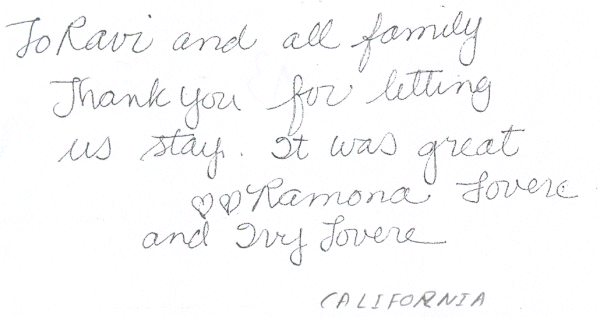 To Ravi and all family
Thank you for letting
us stay. It was great
♡♡ Ramona Lovere
and Ivy Lovere
CALIFORNIA